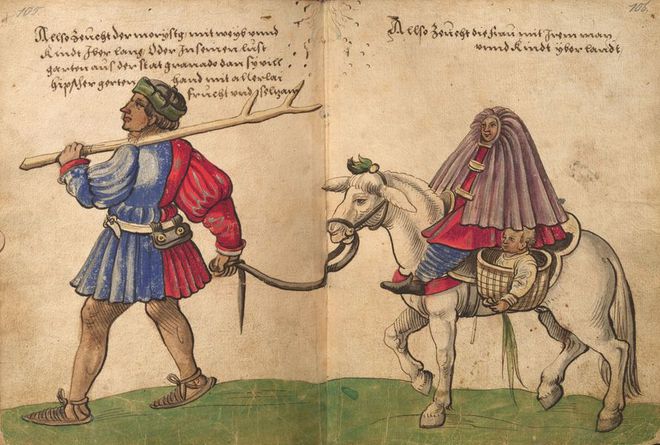 105
Allso Zeucht der morystg mit weyb vnnd
Kindt Iber lang Oder In seinen lust
garten aus der stat granado dan sy vill
hipscher gerten hand mit allerlai
frucht vnd
106
Allso Zeucht die frau mit Irem man
vnnd Kindt yber landt